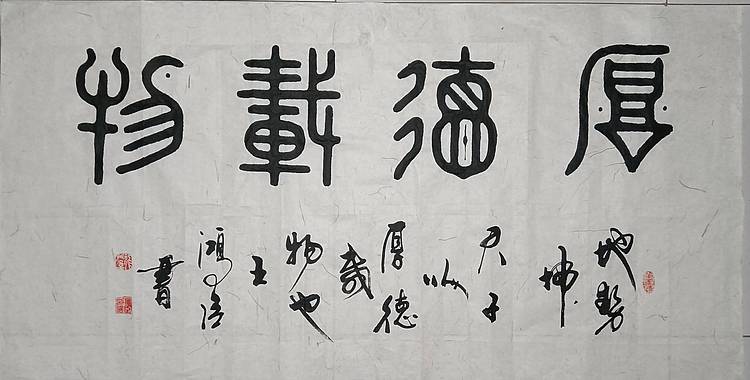 厚德載物
地勢
坤
君子
以
厚德
載
物也
王
鴻
書